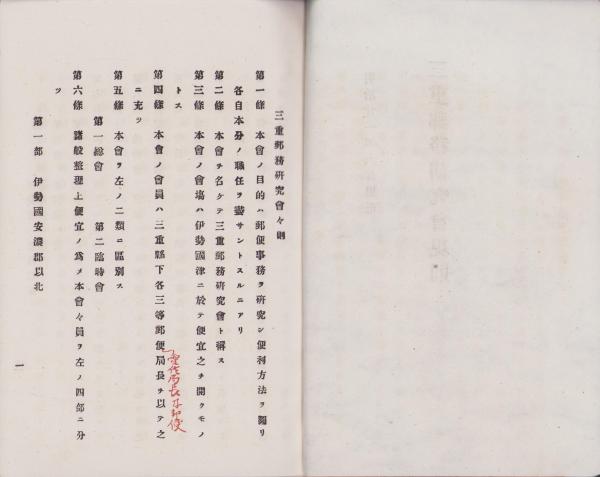 三重郵務硏究會々則
第一條 本會ノ目的ハ郵便事務ヲ硏究シ便利方法ヲ圖リ
各自本分ノ職任ヲ盡サントスルニアリ
第二條 本會チ名ケテ三重郵務硏究會ト稱ス
第三條 本會ノ會塲ハ伊勢國津ニ於テ便宜之チ開クモノ
トス
第四條 本會ノ會員ハ三重縣下各三等郵便局長チ以テ之
ニ充ツ
第五條 本會ヲ左ノ二類ニ區別ス
第一總會 第二臨時會
第六條 諸般整理上便宜ノ爲メ本會々員ヲ左ノ四部ニ分
ツ
第一部 伊勢國安濃郡以北
一